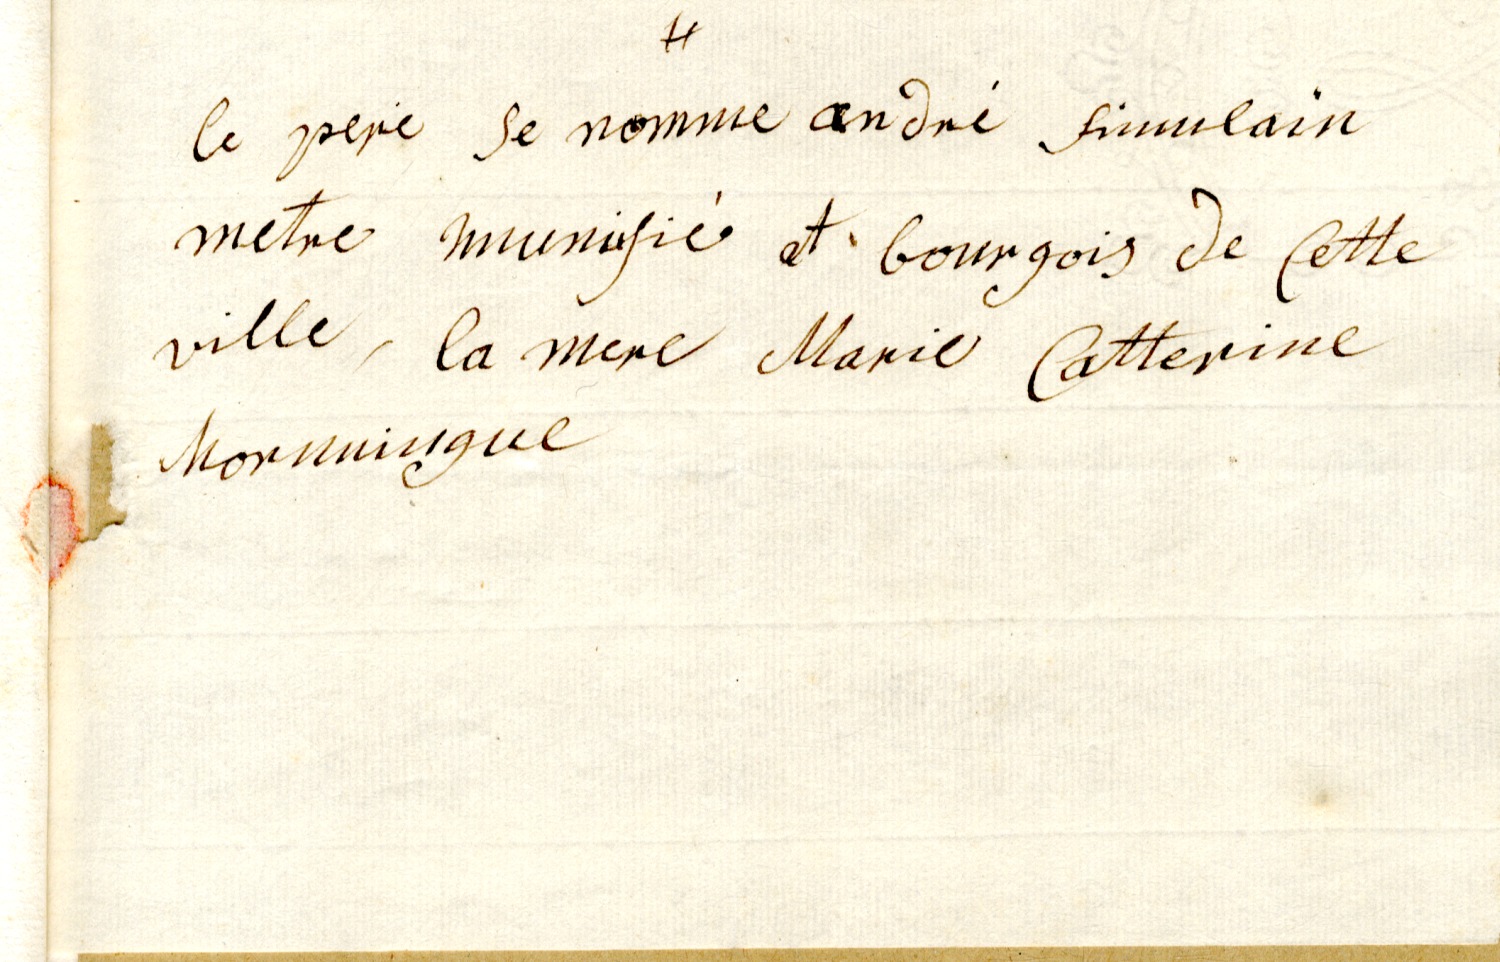 #
le pere se nomme andré simulain
metre munisié et bourgois de Cette
ville, la mere Marie Catterine
Mornningue